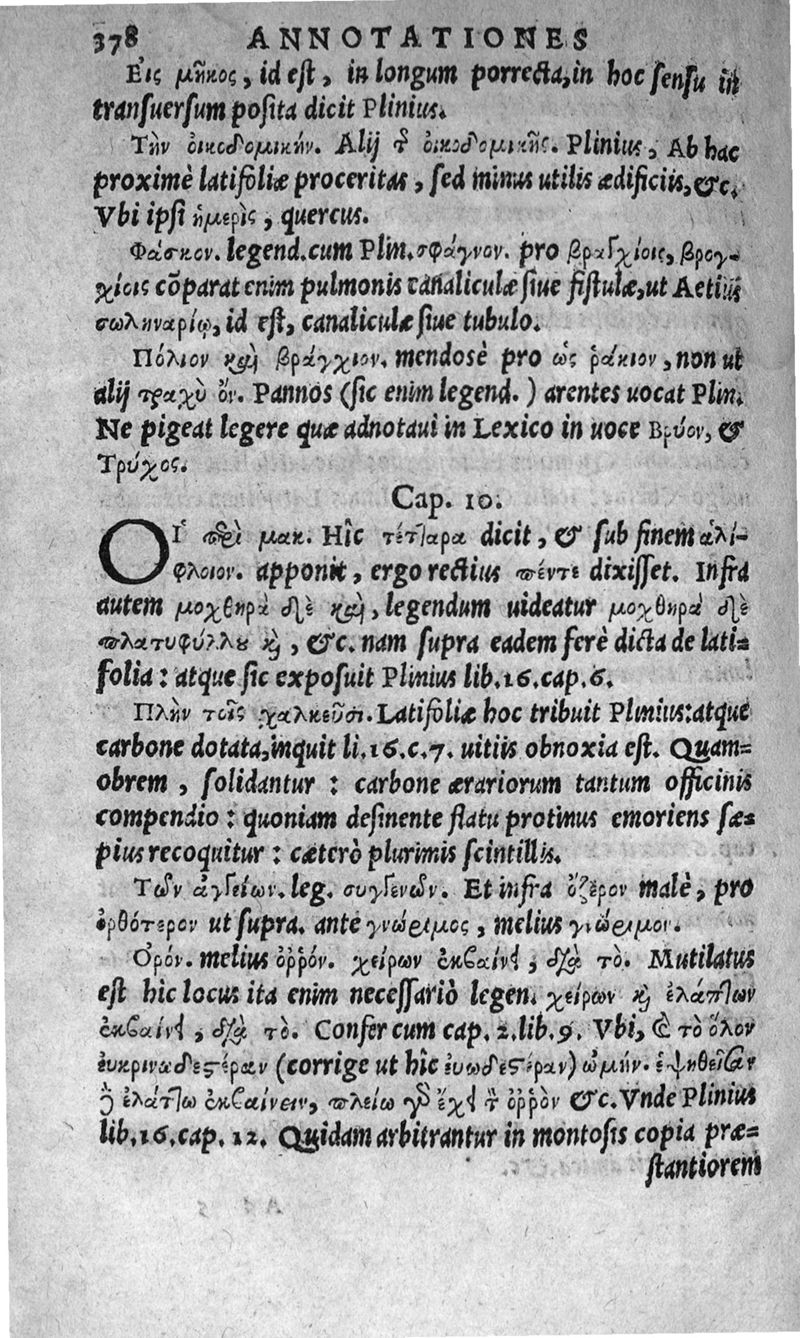 378 ANNOTATIONES
Εἰς μῆκος, id est, in longum porrecta, in hoc sensu in
transuersum posita dicit Plinius.
Τὴν οἰκοδομικήν. Alij τ͂ οἰκοδομικῆς. Plinius, Ab hac
proximè latifoliæ proceritas, sed minus utilis ædificiis, &c.
Vbi ipsi ἡμερὶς, quercus.
Φάσκον. legend. cum Plin. σφάγνον. pro βραγχίοις, βρογ-
χίοις cōparat enim pulmonis canaliculæ siue fistulæ, ut Aetius
σωληναρίῳ, id est, canaliculæ siue tubulo.
Πόλιον καὶ βράγχιον. mendosè pro ὡς ῥάκιον, non ut
alij τραχὺ ὄν. Pannos (sic enim legend.) arentes uocat Plin.
Ne pigeat legere quæ adnotaui in Lexico in uoce Βρύον, &
Τρύχος.
Cap. 10.
ΟΙ περὶ μακ. Hîc τέτταρα dicit, & sub finem ἁλί-
φλοιον. apponit, ergo rectius πέντε dixisset. Infra
autem μοχθηρὰ δὲ καὶ, legendum uideatur μοχθηρὰ δὲ
πλατυφύλλου καὶ, &c. nam supra eadem ferè dicta de lati-
folia: atque sic exposuit Plinius lib. 16. cap. 6.
Πλὴν τοῖς χαλκεῦσι. Latifoliæ hoc tribuit Plinius: atque
carbone dotata, inquit li. 16. c. 7. uitiis obnoxia est. Quam-
obrem, solidantur: carbone ærariorum tantum officinis
compendio: quoniam desinente flatu protinus emoriens sæ-
pius recoquitur: cæterò plurimis scintillis.
Τῶν ἀγγείων. leg. συγγενῶν. Et infra ὄζερον malè, pro
ὀρθότερον ut supra. ante γνώριμος, melius γνώριμον.
Ορόν. melius ὀῤῥόν. χείρων ἐκβαίνει, διὰ τὸ. Mutilatus
est hic locus ita enim necessariò legen. χείρων καὶ ἐλάττων
ἐκβαίνει, διὰ τὸ. Confer cum cap. 2. lib. 9. Vbi, Καὶ τὸ ὅλον
ἐυκρινωδεστέραν (corrige ut hîc ἐυωδεστέραν) ὠμήν. ἑψηθεῖσαν
δὲ ἐλάττω ἐκβαίνειν, πλείω γὰρ ἔχει τ͂ ὀῤῥὸν &c. Vnde Plinius
lib. 16. cap. 12. Quidam arbitrantur in montosis copia præ-
stantiorem